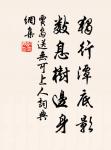 獨行潭底影
數息樹邊身
賈島送無可上人詞典
網集